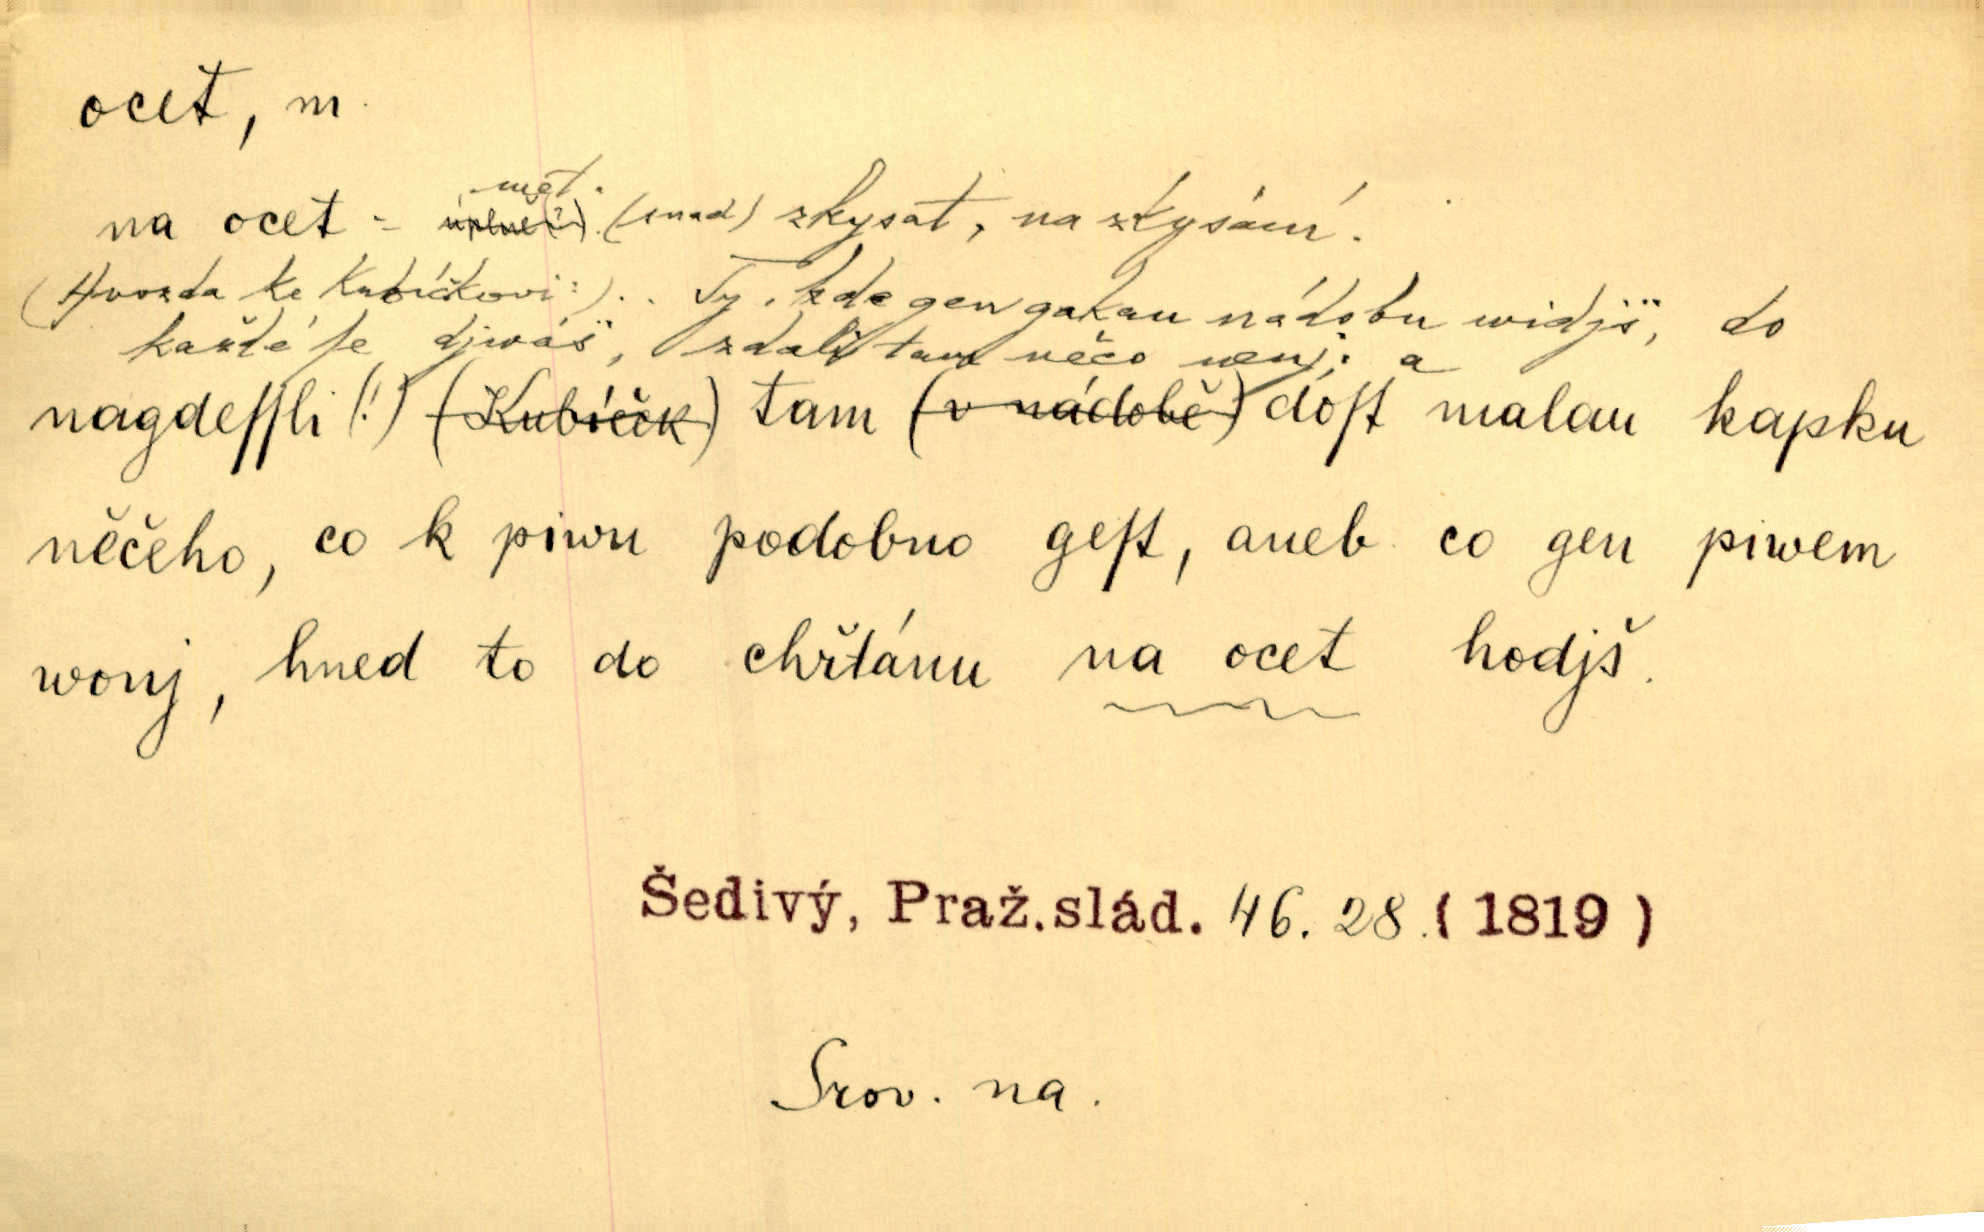 ocet, m.
na ocet = úplně(?) (snad) zkysat, na zkysání.
(Hvozda ke Kubíčkovi:).. Ty, kde gen gakau nádobu widjš, do
každé ſe djwáš, zdaliž tam něco nenj; a
nagdeſſli (!) (Kubíček) tam (v nádobě) doſt malau kapku
něčeho, co k piwu podobno geſt, aneb co gen piwem
wonj, hned to do chřtánu na ocet hodjš.
Šedivý, Praž.slád. 46. 28. (1819)
Srov. na.